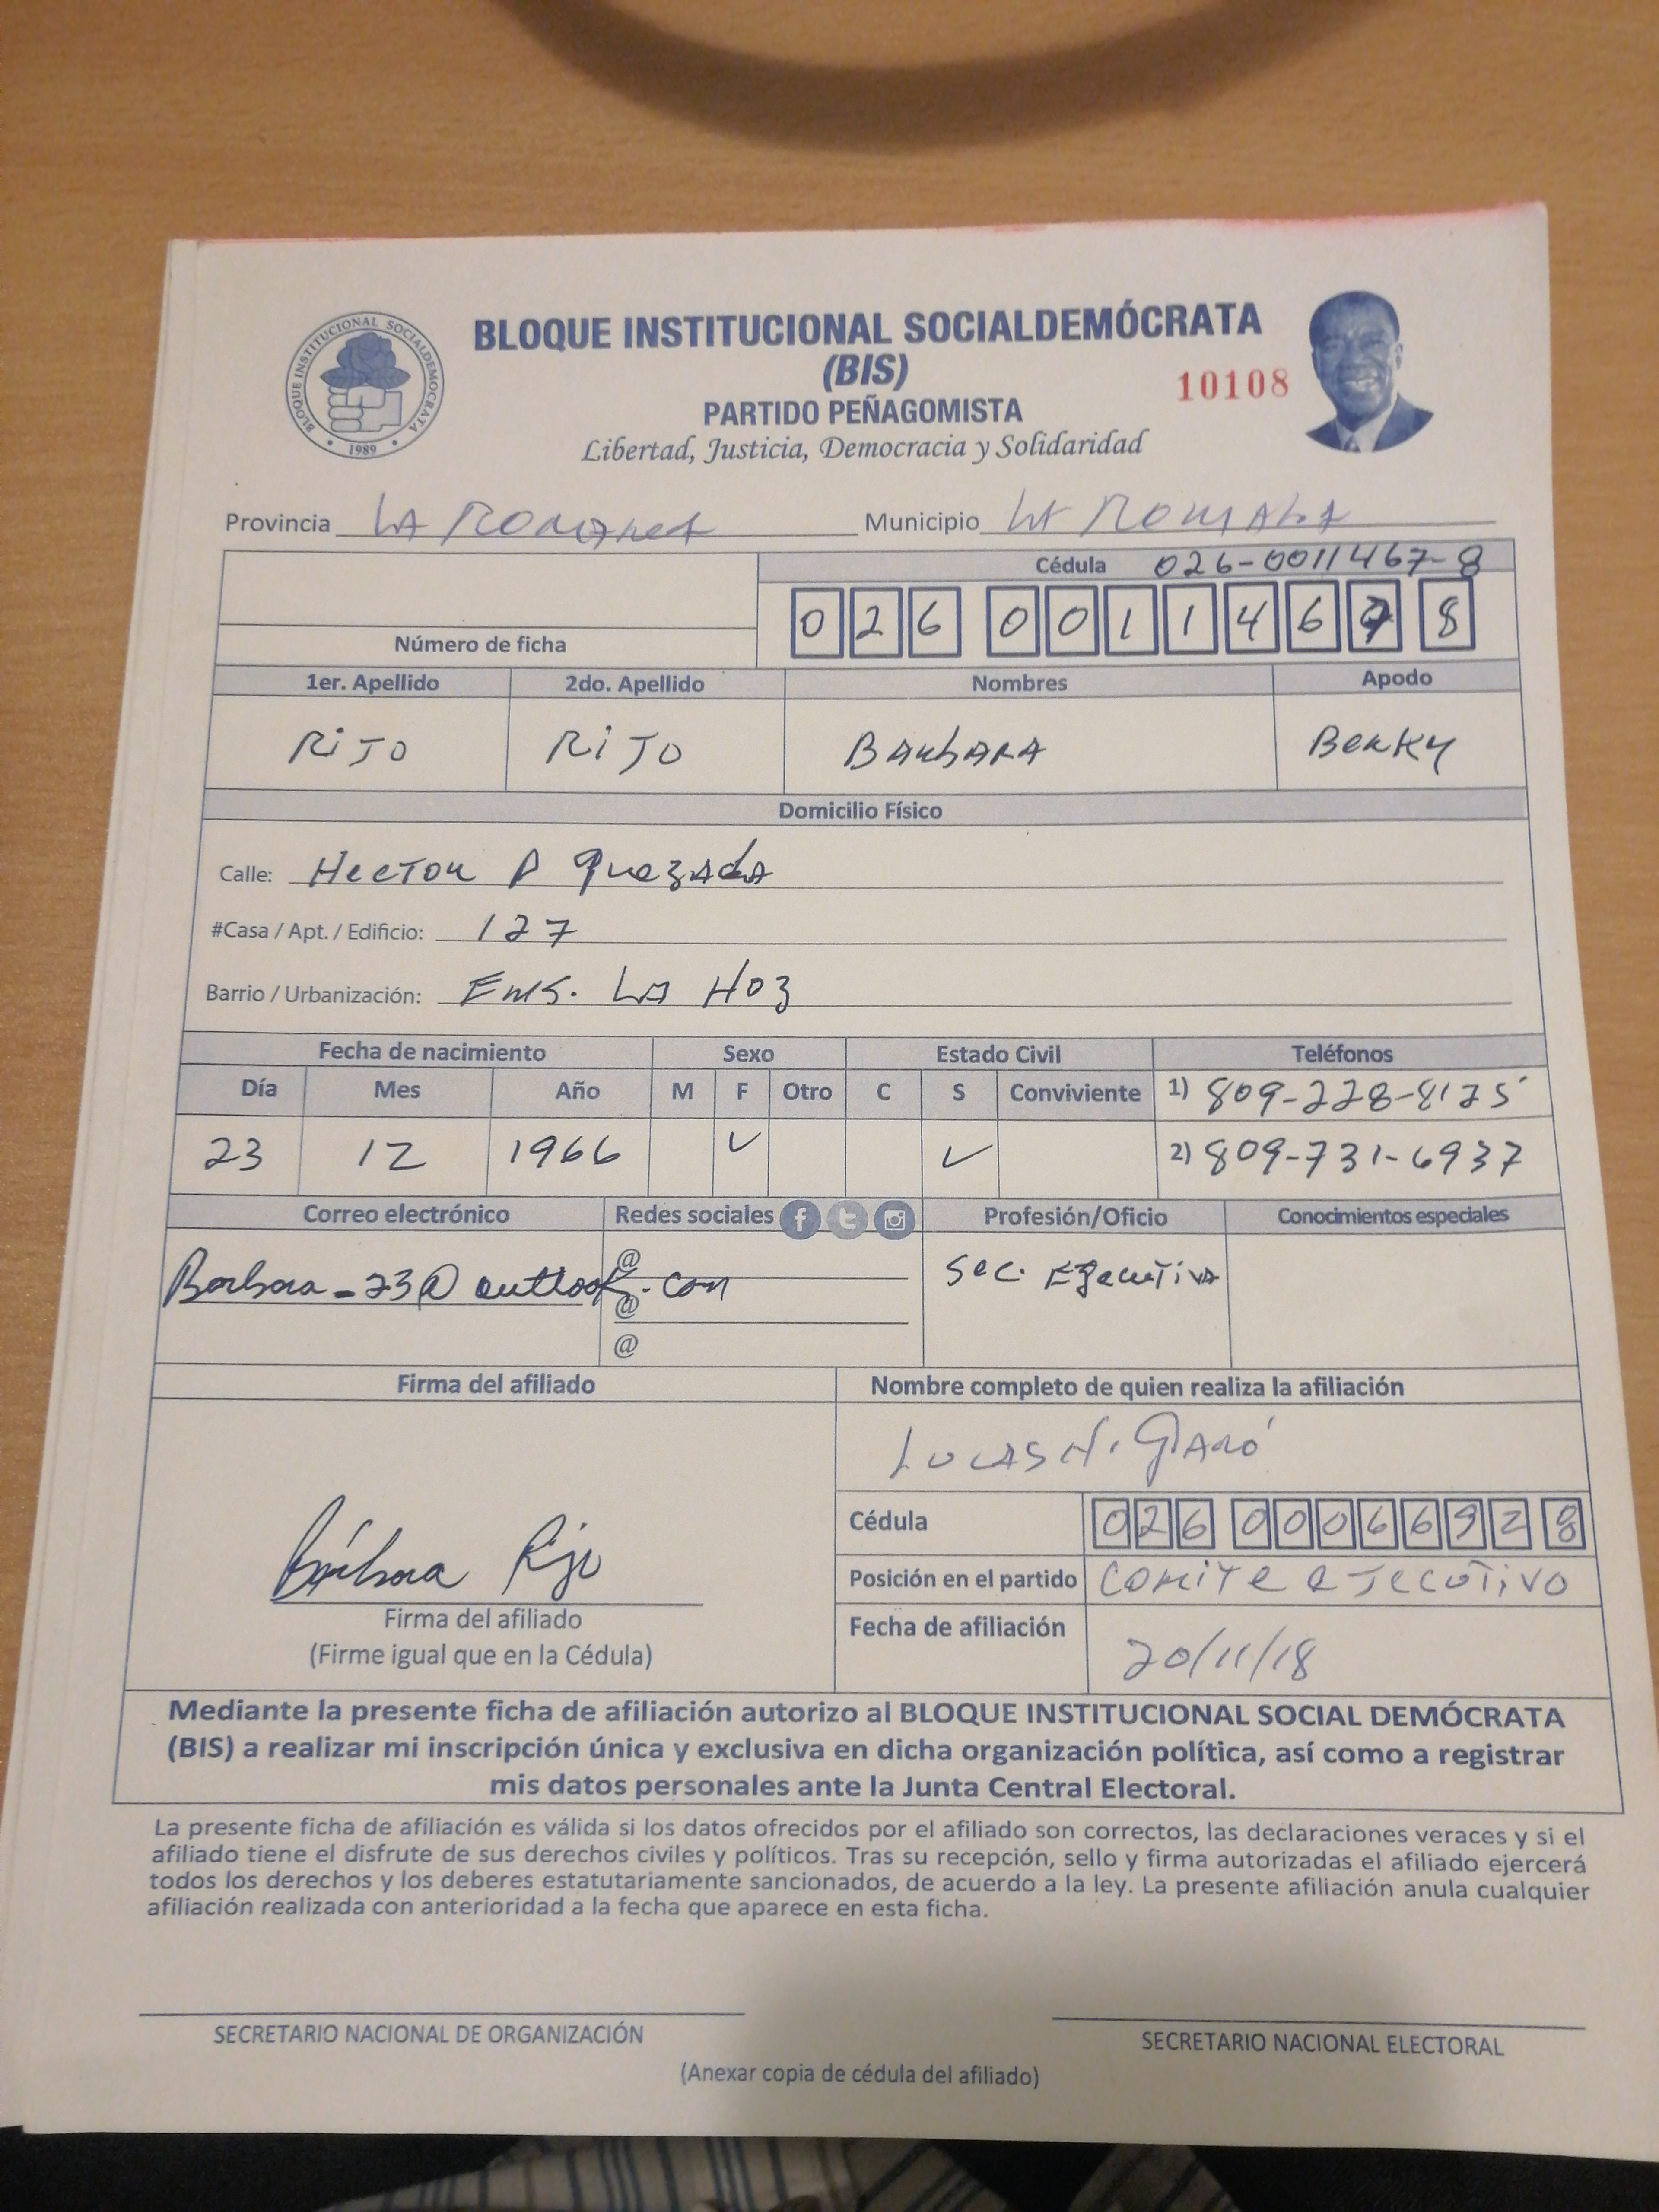 BLOQUE INSTITUCIONAL SOCIALDEMÓCRATA
BLOQUE INSTITUCIONAL SOCIALDEMÓCRATA
(BIS)
10108
PARTIDO PEÑAGOMISTA
Libertad, Justicia, Democracia y Solidaridad
1989
Provincia LA ROMANA Municipio LA ROMANA
Cédula 026-0011467-8
0 2 6 0 0 1 1 4 6 7 8
Número de ficha
1er. Apellido 2do. Apellido Nombres Apodo
RiJO RiJO BARbARA BERKY
Domicilio Físico
Calle: HecTOR P Quezada
#Casa / Apt. / Edificio: 127
Barrio / Urbanización: ENS. LA HOZ
Fecha de nacimiento Sexo Estado Civil Teléfonos
Día Mes Año M F Otro C S Conviviente 1) 809-228-8125
23 12 1966 ✓ ✓ 2) 809-731-6937
Correo electrónico Redes sociales f t Profesión/Oficio Conocimientos especiales
@
Barbara_23@outlook.com Sec. EJecuTivA
@
@
Firma del afiliado Nombre completo de quien realiza la afiliación
LUCAS H.
Cédula 0 2 6 0 0 0 6 6 9 2 8
Bárbara Rijo
Posición en el partido COMITe eJecuTiVO
Firma del afiliado
(Firme igual que en la Cédula)
Fecha de afiliación 20/11/18
Mediante la presente ficha de afiliación autorizo al BLOQUE INSTITUCIONAL SOCIAL DEMÓCRATA
(BIS) a realizar mi inscripción única y exclusiva en dicha organización política, así como a registrar
mis datos personales ante la Junta Central Electoral.
La presente ficha de afiliación es válida si los datos ofrecidos por el afiliado son correctos, las declaraciones veraces y si el
afiliado tiene el disfrute de sus derechos civiles y políticos. Tras su recepción, sello y firma autorizadas el afiliado ejercerá
todos los derechos y los deberes estatutariamente sancionados, de acuerdo a la ley. La presente afiliación anula cualquier
afiliación realizada con anterioridad a la fecha que aparece en esta ficha.
SECRETARIO NACIONAL DE ORGANIZACIÓN SECRETARIO NACIONAL ELECTORAL
(Anexar copia de cédula del afiliado)